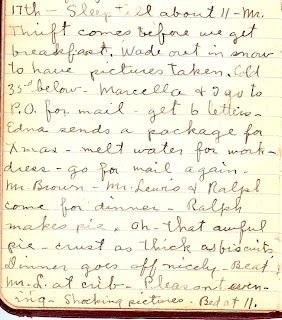 17th - Sleep till about 11 - Mr.
Thrift comes before we get
breakfast. Wade out in snow
to have pictures taken. Cold
35° below - Marcella & I go to
P.O. for mail - get 6 letters -
Edna sends a package for
Xmas - melt water for work -
dress - go for mail again -
Mr. Brown - Mr. Lewis & Ralph
come for dinner - Ralph
makes pie, oh - that awful
pie - crust as thick as biscuits
Dinner goes off nicely - Beat
Mr. L. at crib - Pleasant even-
ing - Shocking pictures - Bed at 11.